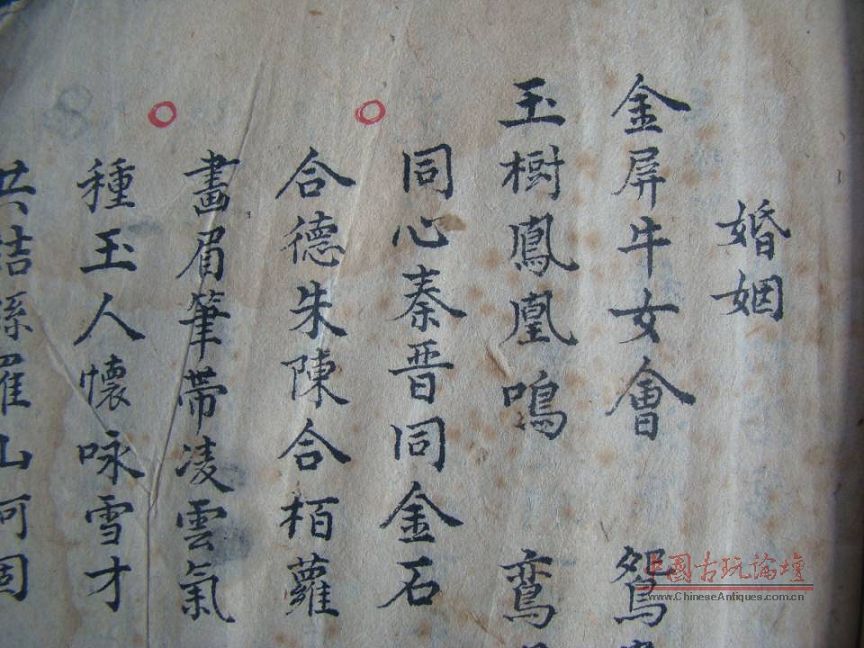 婚姻
金屏牛女會 鴛
玉樹鳳凰鳴 鸾
同心秦晋同金石
合德朱陳合栢蘿
畫眉筆帶凌雲氣
種玉人懷咏雪才
共結絲羅山河固
中國古玩論壇
www.ChineseAntiques.com.cn